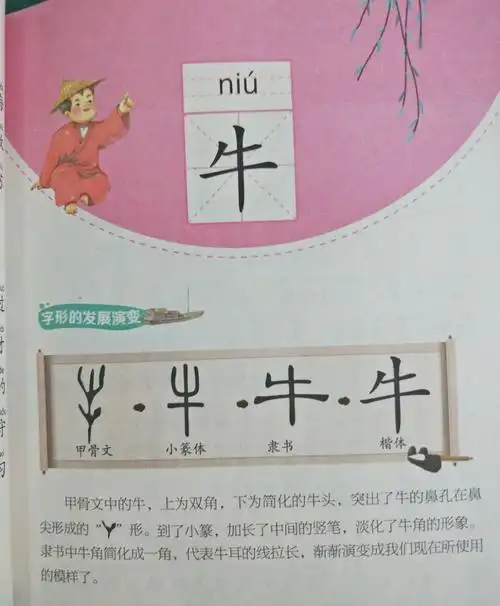 niú
牛
字形的发展演变
牛 牛 牛
甲骨文 小篆体 隶书 楷体
甲骨文中的牛，上为双角，下为简化的牛头，突出了牛的鼻孔在鼻
尖形成的“ ”形。到了小篆，加长了中间的竖笔，淡化了牛角的形象。
隶书中牛角简化成一角，代表牛耳的线拉长，渐渐演变成我们现在所使用
的模样了。